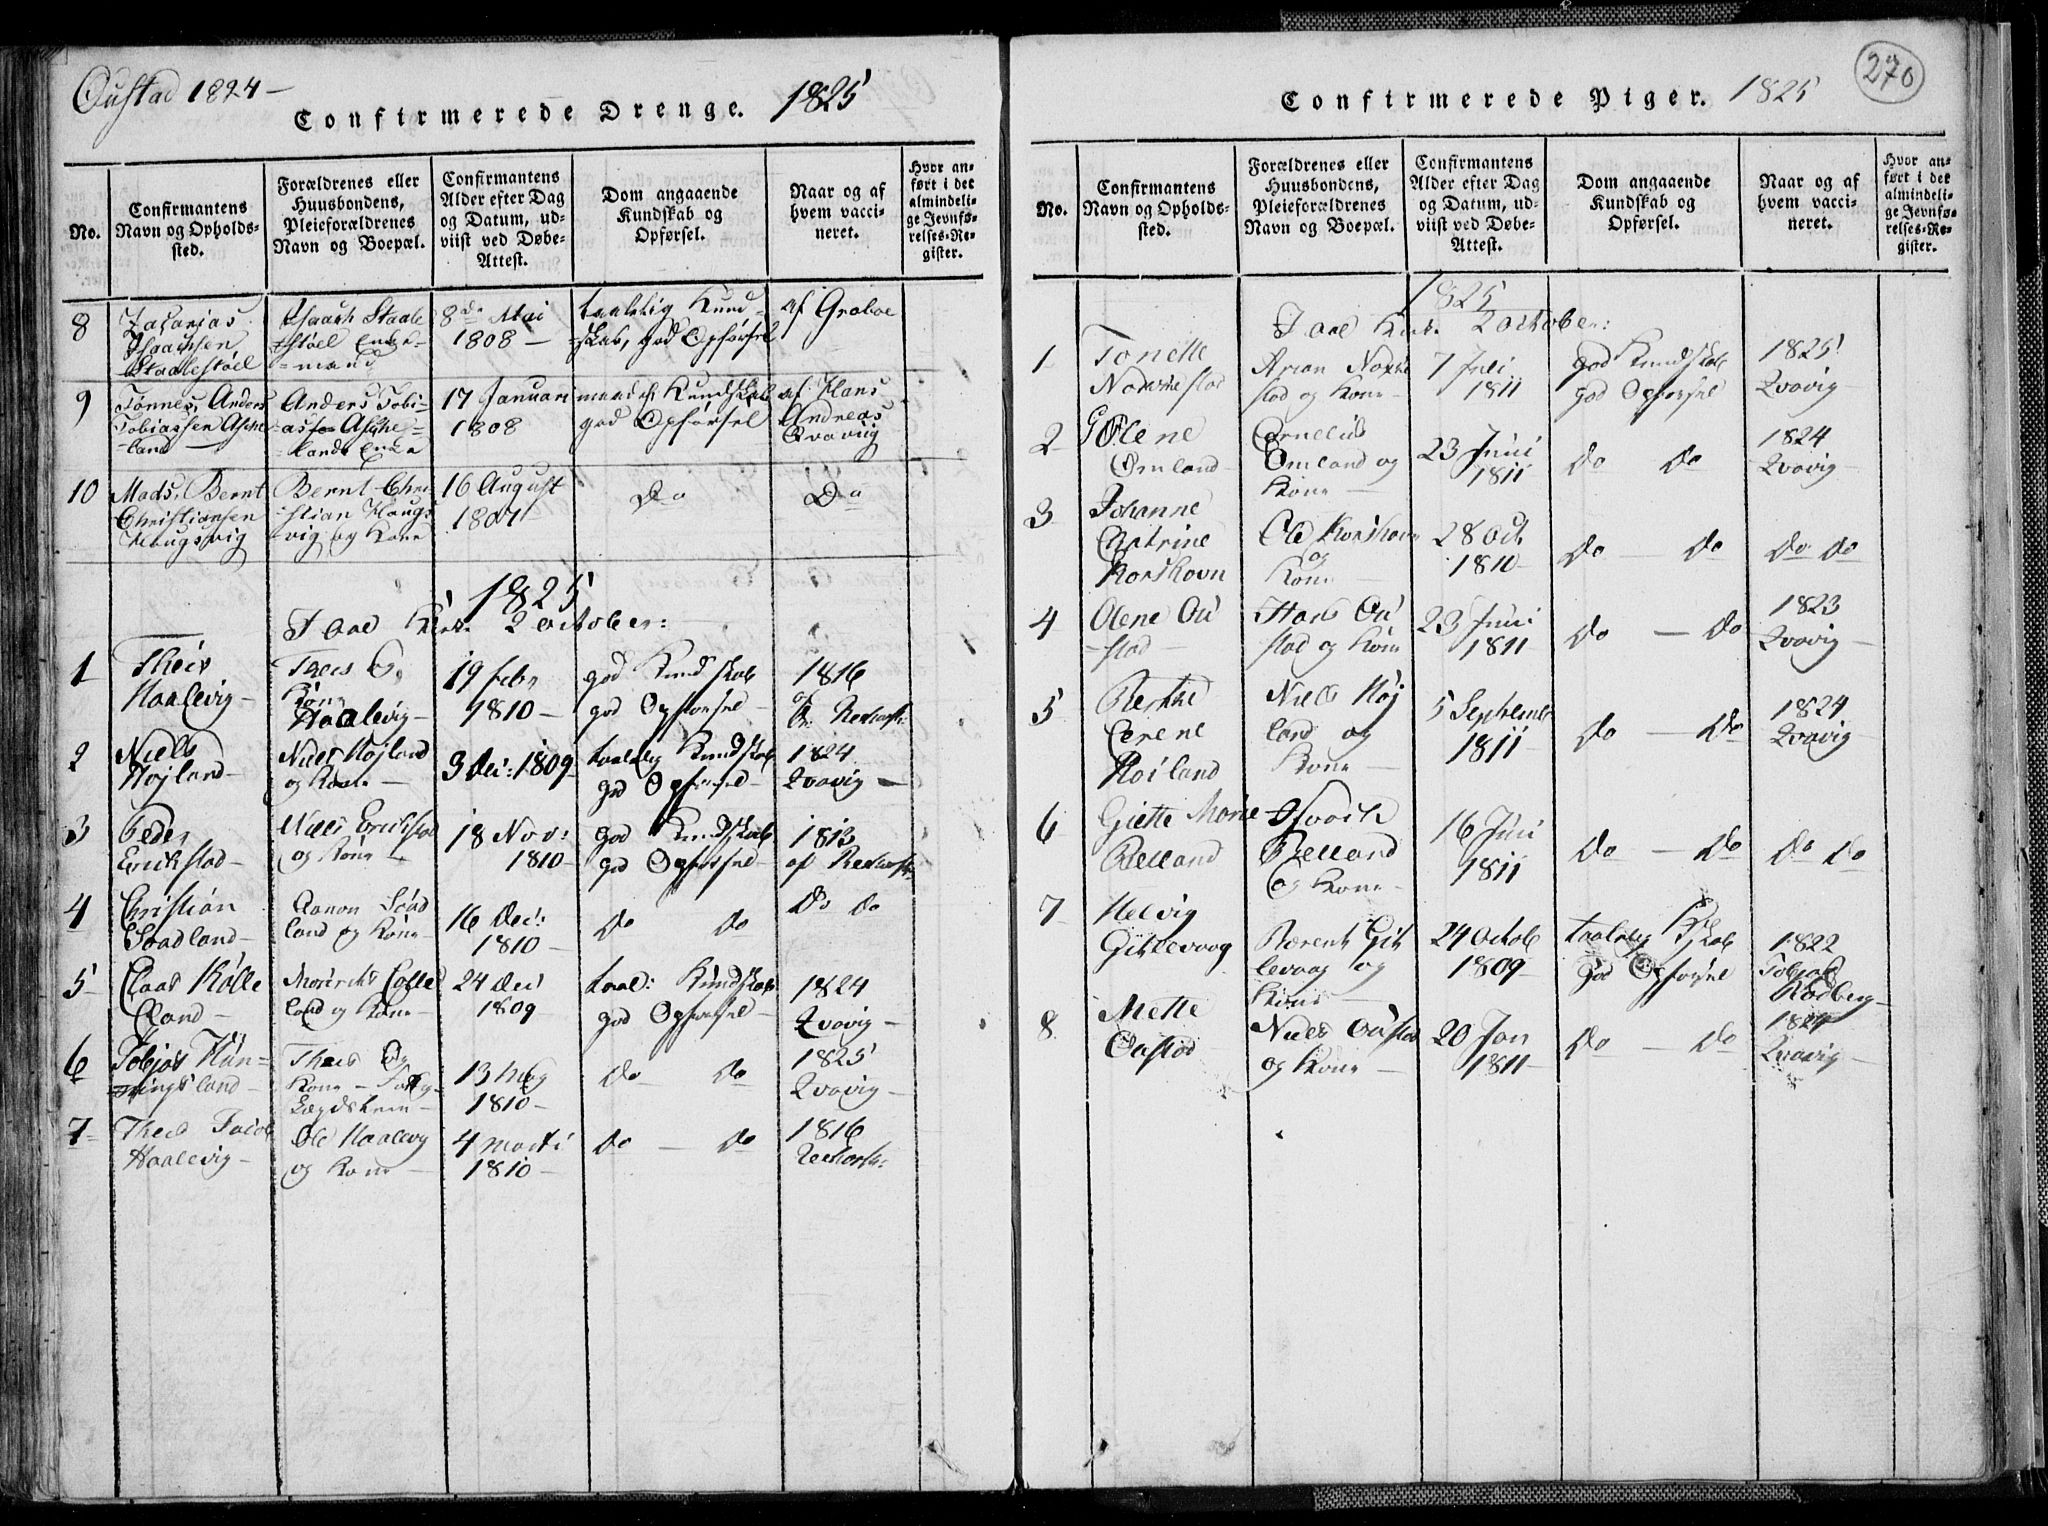 Oustad 1824 –
Confirmerede Drenge. 1825
No.
Confirmantens
Navn og Opholds-
sted.
Forældrenes eller
Huusbondens,
Pleieforældrenes
Navn og Boepæl.
Confirmantens
Alder efter Dag
og Datum, ud-
viist ved Døbe-
Attest.
Dom angaaende
Kundskab og
Opførsel.
Naar og af
hvem vacci-
neret.
Hvor an-
ført i det
almindeli-
ge Jevnfø-
relses-Re-
gister.
8
Zacarias
Isaachsen
Staalestøel
Isaach Staale
-støel Enke-
=mand
8de Mai
1808 –
taalelig Kund-
-skab, god Opførsel
af Graboe
9
Tønnes, Anders
Tobiassen Asche
-land –
Anders Tobi-
Asche-
-lands Enke
17 Januari
1808
Kundskab
god Opførsel
af Hans
Andreas
Qvavig
10
Mads, Bernt
Christiansen
Haugsvig
Bernt Chri-
-stian Haugs
-vig og Kone
16 August
1807
Do
Do
1825
I Aae Kirke 2 October:
1
Theis
Haalevig –
Theis O,
Kone
Haalevig –
19 febr
1810 –
god Kundskab
god Opførsel –
1816
af
2
Niels
Højland –
Niels Højland
og Kone –
3 Dec: 1809
taalelig Kundskab
god Opførsel –
1824
Qvavig –
3
Peder
Erikstad –
Niels Erikstad
og Kone –
18 Nov:
1810 –
god Kundskab
god Opførsel
1813
af
4
Christian
Saadland –
Aanon Saad
land og Kone
16 Dec:
1810 –
Do Do
Do Do
5
Claas Kølle
land –
land og Kone
24 Dec
1809
taal: Kundskab
god Opførsel –
1824
Qvavig –
6
Tobias Hun-
=ningsland –
Theis O,
Kone –
13 May
1810 –
Do Do
1825
Qvavig –
7
Theis Jacob
Haalevig –
Ole Haalevig
og Kone –
4 Marti
1810 –
Do – Do
1816
Confirmerede Piger. 1825
270
No.
Confirmantens
Navn og Opholds-
sted.
Forældrenes eller
Huusbondens,
Pleieforældrenes
Navn og Boepæl.
Confirmantens
Alder efter Dag
og Datum, ud-
viist ved Døbe-
Attest.
Dom angaaende
Kundskab og
Opførsel.
Naar og af
hvem vacci-
neret.
Hvor an-
ført i det
almindeli-
ge Jevnfø-
relses-Re-
gister.
1825
I Aae Kirke 2 October:
1
Tonette
stad og Kone
7 Juli
1811
god Kundskab
god Opførsel
1825
Qvavig –
2
Olene
Omland –
Cornelius
Omland og
Kone –
23 Juni
1811
Do Do
1824
Qvavig –
3
Johanne
Catrine
Korshavn
Ole Korshavn
og
Kone –
28 Oct
1810 –
Do – Do
Do Do
4
Olene Ou
-stad –
Hans Ou
stad og Kone
23 Juni
1811
Do – Do
1823
Qvavig –
5
Berthe
Serene
Høiland
Niels Høj
land og
Kone –
5 September
1811
Do – Do
1824
Qvavig –
6
Giette Marie
Relland
Isaach
Relland
og Kone –
16 Juni
1811
Do – Do
Do Do
7
Helvig
Gitlevaag
Berent Git
levaag og
Kone –
24 Octob
1809 –
taalelig
god Opførsel
1822
Tobias
Rødberg –
8
Mette
Oustad
Niels Oustad
og Kone –
20 Jan
1811 –
Do – Do
1824
Qvavig –